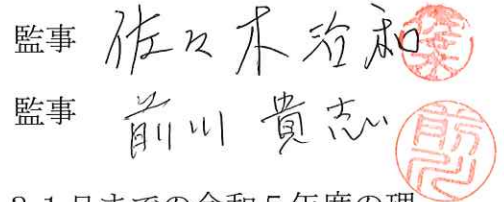 監事 佐々木治和
監事 前川貴志
31日までの令和5年度の理